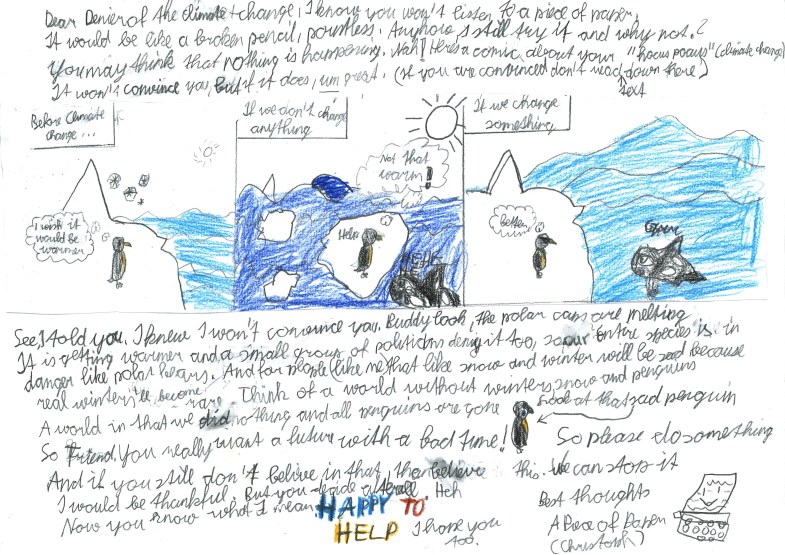 Dear Denier of the climate change, I know you won't listen to a piece of paper.
It would be like a broken pencil, pointless. Anyhow I still try it and why not?
You may think that nothing is happening. Nah! Here's a comic about your "hocus pocus" (climate change)
It won't convince you, but if it does, um great. (if you are convinced don't read down there)
text
Before Climate change...
I wish it would be warmer
If we don't change anything
Not that warm!
Help
HEHE
If we change something
better
See, I told you. I knew I won't convince you. Buddy look, the polar caps are melting
It is getting warmer and a small group of politicians deny it too, so our entire species is in
danger like polar bears. And for people (like me) that like snow and winter will be sad because
real winters'll become rare. Think of a world without winter, snow and penguins
A world in that we did nothing and all penguins are gone
look at that sad penguin
So Friend. You really want a future with a bad time!
So please do something
And if you still don't belive in that, then believe this. We can stop it
I would be thankful. But you decide afterall. Heh
Now you know what I mean.
HAPPY TO HELP
I hope you too.
Best thoughts
A Piece of Paper
(Christoph)